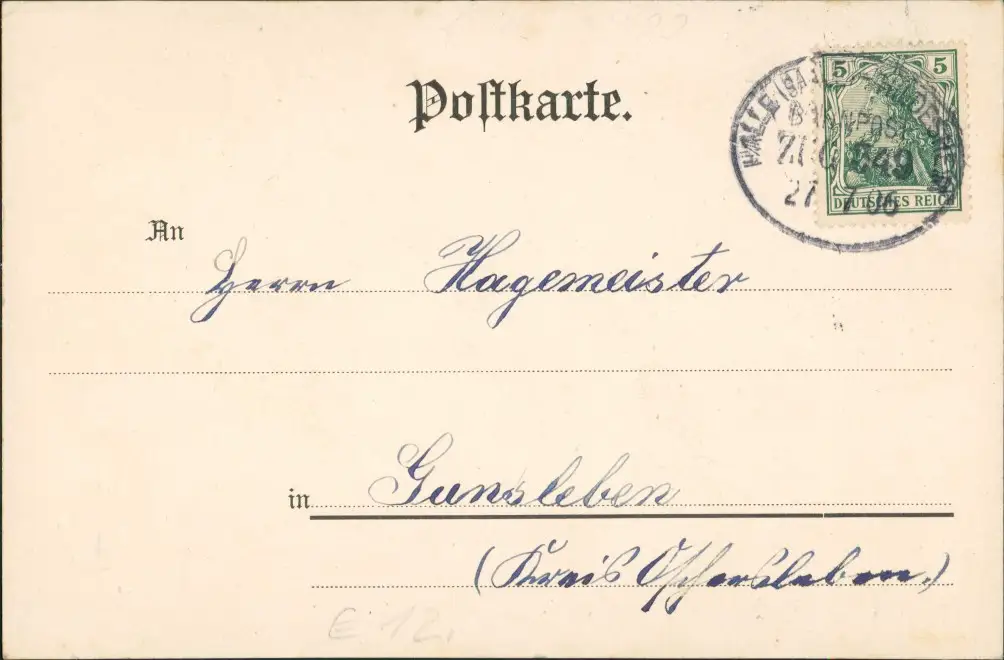 Postkarte.
5 5
DEUTSCHES REICH
HALLE (SAALE)
BAHNPOST
ZUG 249
27 7 06
An
Herrn Hagemeister
in Gunsleben
(Kreis Oschersleben.)
E 12.